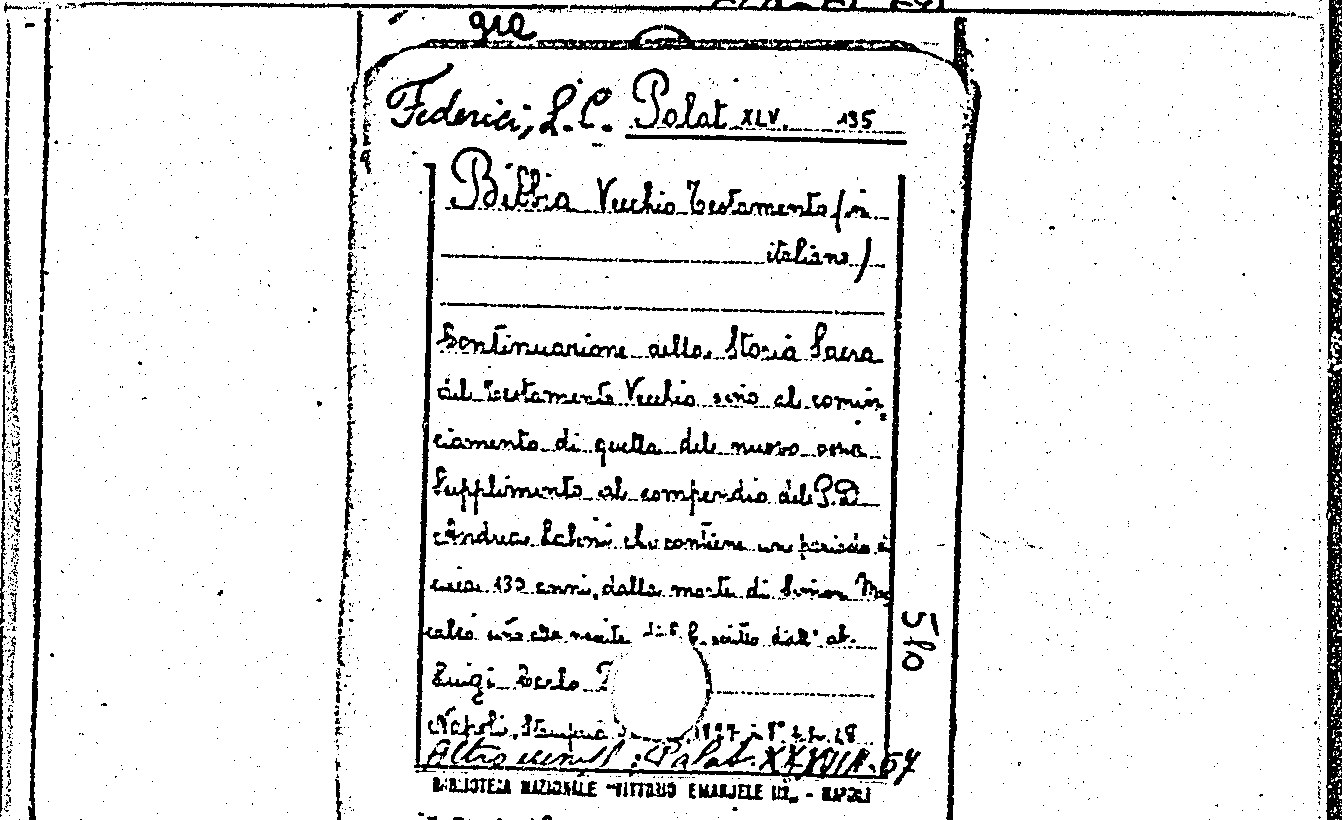 gia
Federici, L.C. Palat XLV. 135
Bibbia Vecchio Testamento (in
italiano)
Continuazione della Storia Sacra
del Testamento Vecchio sino al comin=
ciamento di quella del nuovo ossia
Supplimento al compendio del P.D.
Andrea che contiene un periodo di
circa 130 anni, dalla morte di Simon Mac
cabeo sino alla nascita di scritto dall' ab.
Luigi Carlo
Napoli, Stamperia 18
Altro : Palat. XXXVIII-57
5/0
BIBLIOTECA NAZIONALE "VITTORIO EMANUELE III" - NAPOLI